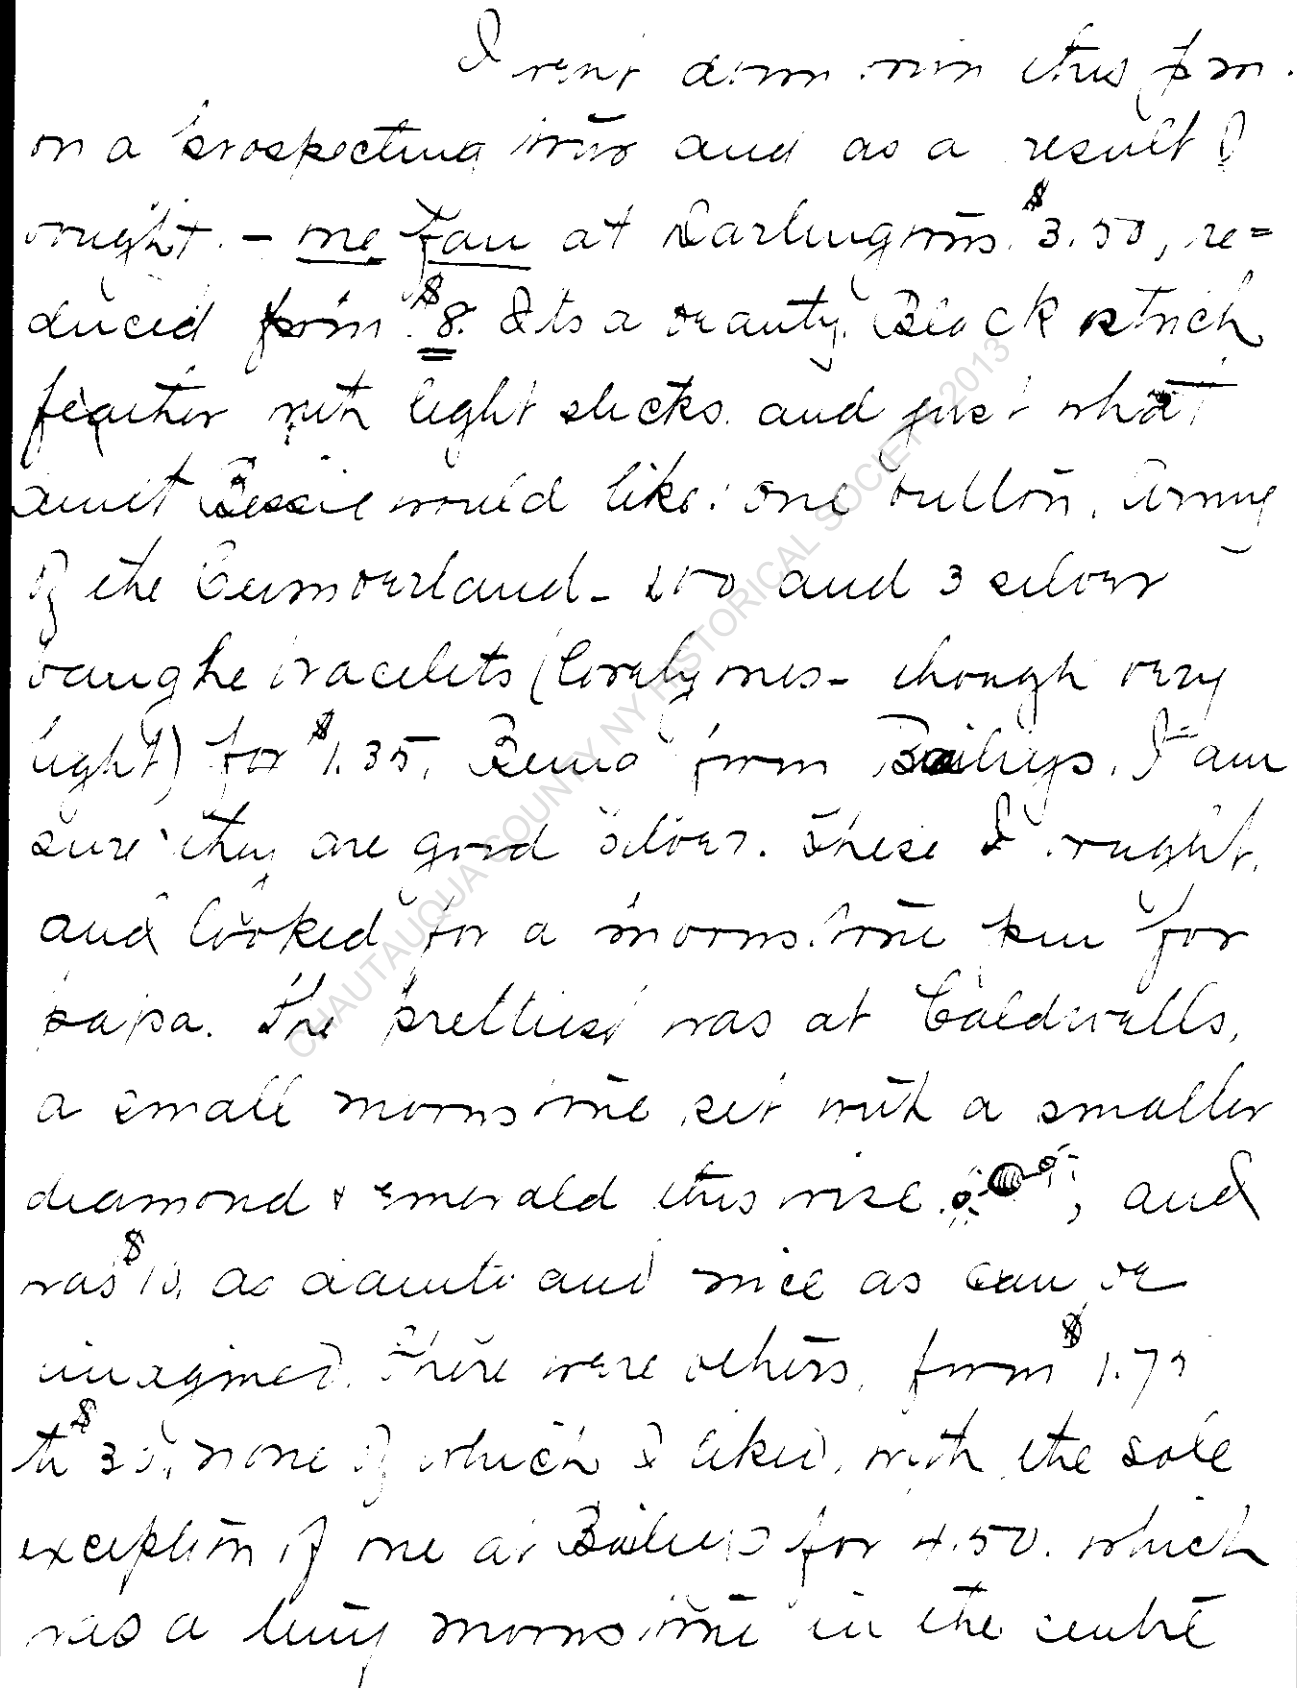 I went down town this p m.
on a prospecting tour and as a result I
bought. - one fan at Darlingtons. $3.50, re=
duced from $8. Its a beauty. Black ostrich
feather with light sticks. and just what
aunt Bessie would like: one button, Army
of the Cumberland - and 3 silver
bangle bracelets (lovely ones - though very
light) for $1.35, Being from Baileys. I am
sure they are good silver. These I bought,
and looked for a moonstone pin for
papa. The prettiest was at Caldwells,
a small moonstone set with a smaller
diamond & emerald this wise , and
was $10. as dainty and nice as can be
imagined. There were others, from $1.75
to $30, none of which I liked, with the sole
exception of one at Baileys for 4.50. which
was a tiny moonstone in the centre
CHAUTAUQUA COUNTY NY HISTORICAL SOCIETY 2013